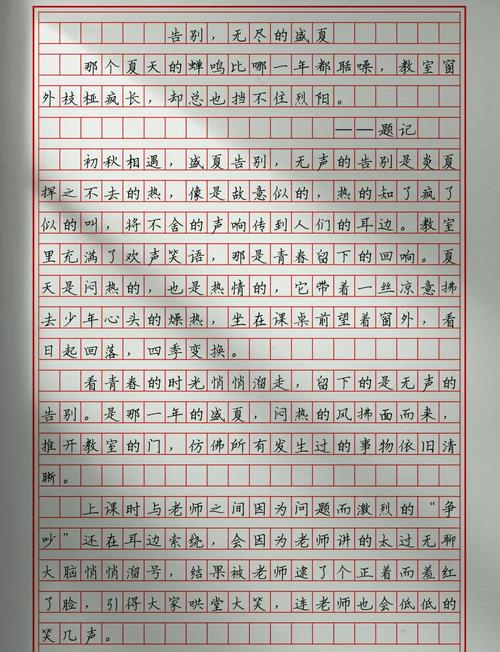 告别，无尽的盛夏
那个夏天的蝉鸣比哪一年都聒噪，教室窗
外枝桠疯长，却总也挡不住烈阳。
——题记
初秋相遇，盛夏告别，无声的告别是炎夏
挥之不去的热，像是故意似的，热的知了疯了
似的叫，将不舍的声响传到人们的耳边。教室
里充满了欢声笑语，那是青春留下的回响。夏
天是闷热的，也是热情的，它带着一丝凉意拂
去少年心头的燥热，坐在课桌前望着窗外，看
日起回落，四季变换。
看青春的时光悄悄溜走，留下的是无声的
告别。是那一年的盛夏，闷热的风拂面而来，
推开教室的门，仿佛所有发生过的事物依旧清
晰。
上课时与老师之间因为问题而激烈的“争
吵”还在耳边萦绕，会因为老师讲的太过无聊
大脑悄悄溜号，结果被老师逮了个正着而羞红
了脸，引得大家哄堂大笑，连老师也会低低的
笑几声。